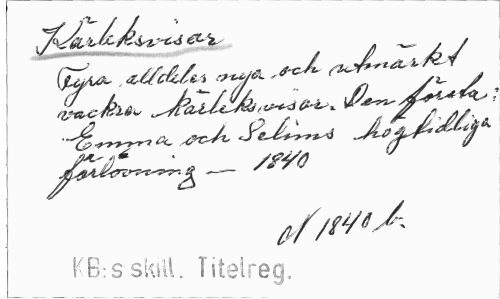 Kärleksvisar
Fyra alldeles nya och utmärkt
vackra kärleksvisor. Den första:
Emma och Selims högtidliga
förlovning — 1840
N 1840 b.
KB:s skill. Titelreg.